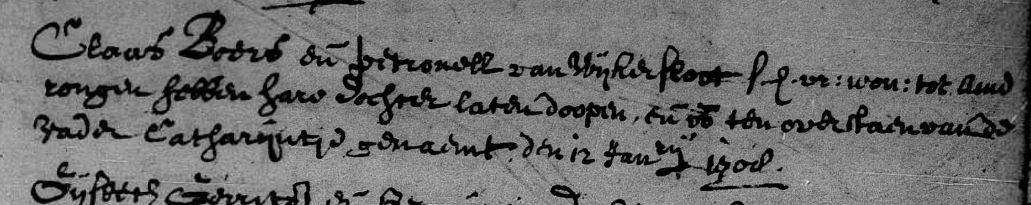 Claas Boers en̄ petronell van Wijkersloot won: tot Amd
rongen hebben hare dochter laten doopen, en̄ is ten overstaen van de
vader Catharijntje genaemt, den 12 Jan rij 1708.
Gijsbert Gerrits en̄